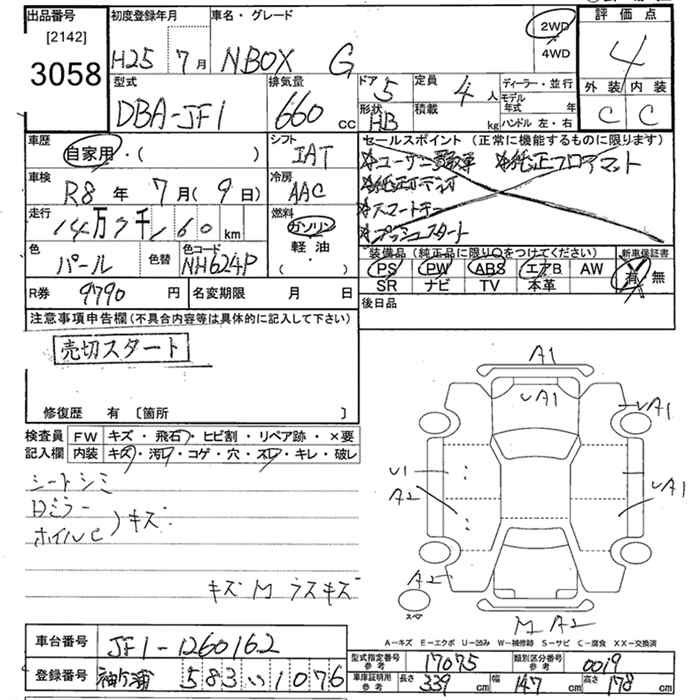 出品番号
[2142]
3058
初度登録年月
H25 7月
車名・グレード
NBOX G
2WD
4WD
評価点
4
外装 内装
C C
型式
DBA-JF1
排気量
660 cc
ドア 5
定員 4人
形状 HB
積載 kg
ディーラー・並行
モデル年式 年
ハンドル 左・右
車歴
自家用・( )
シフト
IAT
セールスポイント (正常に機能するものに限ります)
☆ユーザー買取車 ☆純正フロアマット
☆純正オーディオ
☆スマートキー
☆プッシュスタート
車検
R8年 7月(9日)
冷房
AAC
走行
14万7千160km
燃料
ガソリン
軽油
( )
色
パール
色替
色コード
NH624P
装備品 (純正品に限り○をつけてください)
PS PW ABS エアB AW
SR ナビ TV 本革
新車保証書
有・無
R券 9790円
名変期限 月 日
後日品
注意事項申告欄(不具合内容等は具体的に記入して下さい)
売切スタート
修復歴 有 [箇所 ]
検査員記入欄
FW キズ・飛石・ヒビ割・リペア跡・×要
内装 キズ・汚れ・コゲ・穴・スレ・キレ・破レ
シートシミ
Dミラー
ホイルC)キズ
キズM ラスキズ
A1
UA1
UA1
U1
A2
UA1
A2
M A2
スペア
A-キズ E-エクボ U-凹み W-補修跡 S-サビ C-腐食 XX-交換済
車台番号 JF1-1260162
登録番号 袖ケ浦 583い1076
型式指定番号参考 17075
類別区分番号参考 0019
車庫証明用参考 長さ 339cm 幅 147cm 高さ 178cm